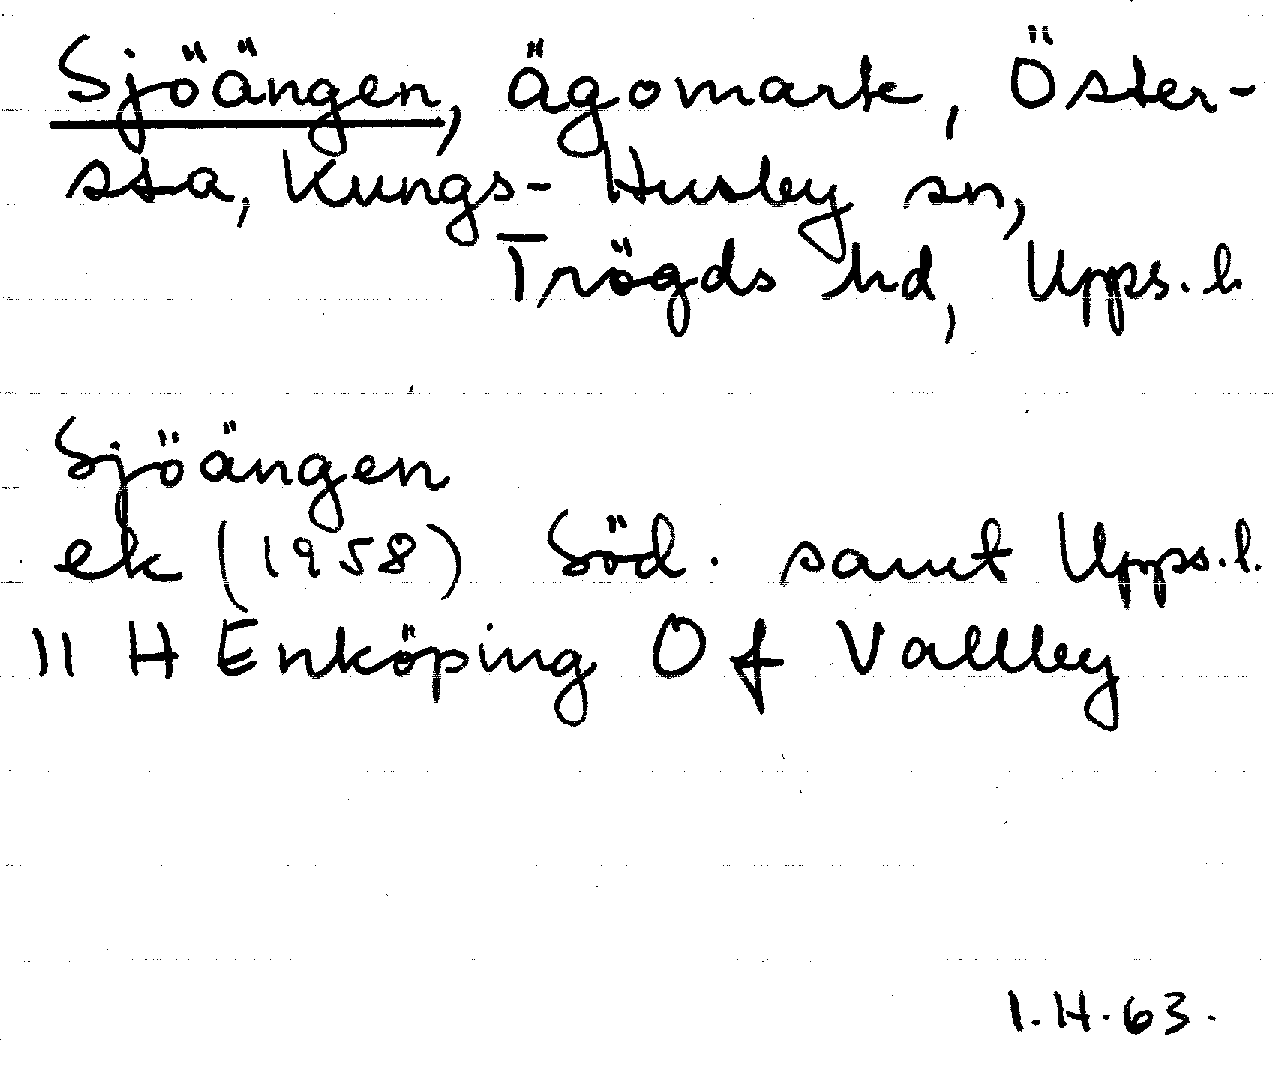 Sjöängen, Ägomark, Öster-
sta, Kungs-Husby sn,
Trögds hd, Upps. l.
Sjöängen
ek (1958) Söd. samt Upps. l.
11 H Enköping Of Vallby
I.H.63.